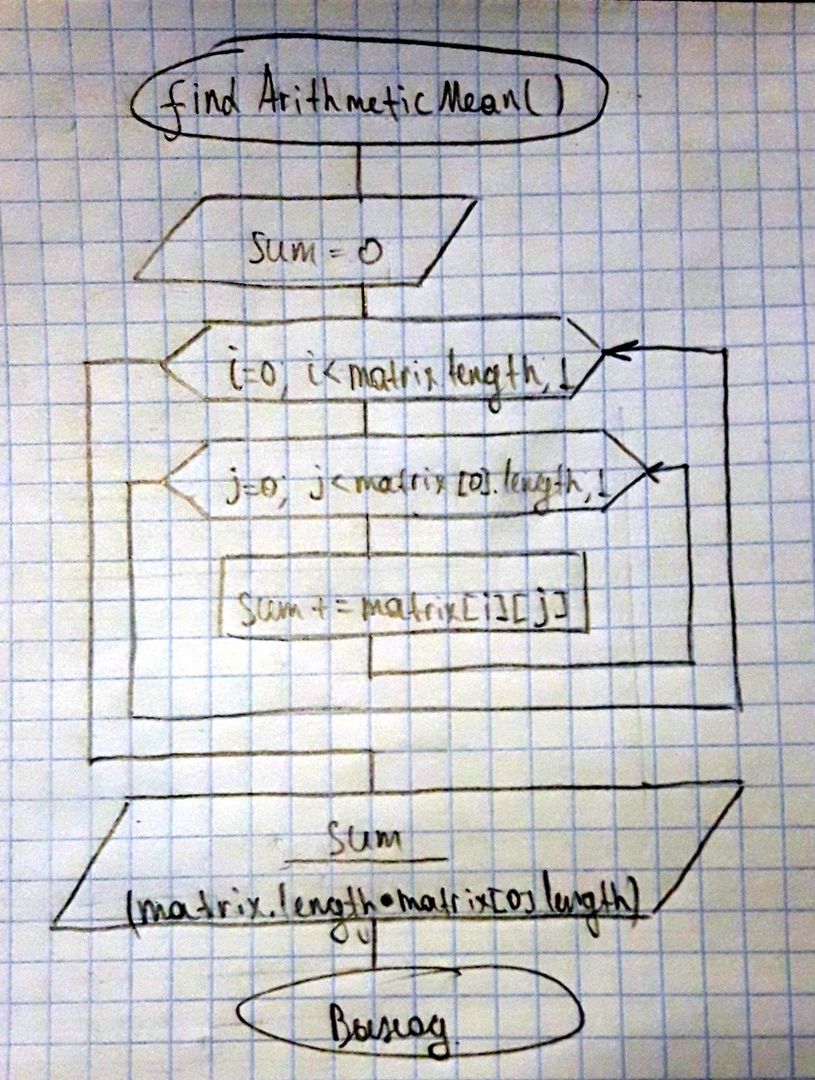 find ArithmeticMean()
Sum = 0
i=0; i<matrix.length, 1
j=0; j<matrix[0].length, 1
Sum += matrix[i][j]
Sum
(matrix.length•matrix[0].length)
Выход